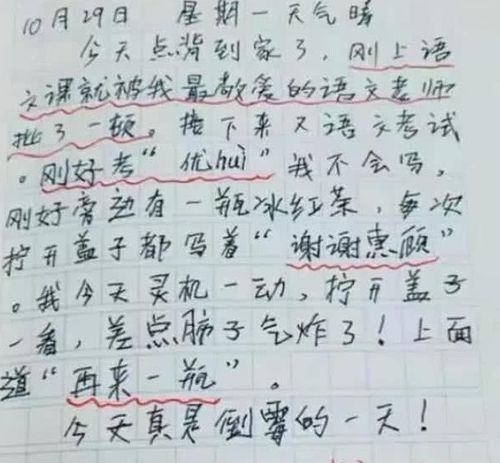 10月29日 星期一天气晴
今天点背到家了,刚上语
文课就被我最敬爱的语文老师
批了一顿。接下来又语文考试
。刚好考“优huì”我不会写,
刚好旁边有一瓶冰红茶,每次
拧开盖子都写着“谢谢惠顾”
。我今天灵机一动,拧开盖子
一看,差点肺子气炸了!上面
道“再来一瓶”。
今天真是倒霉的一天!